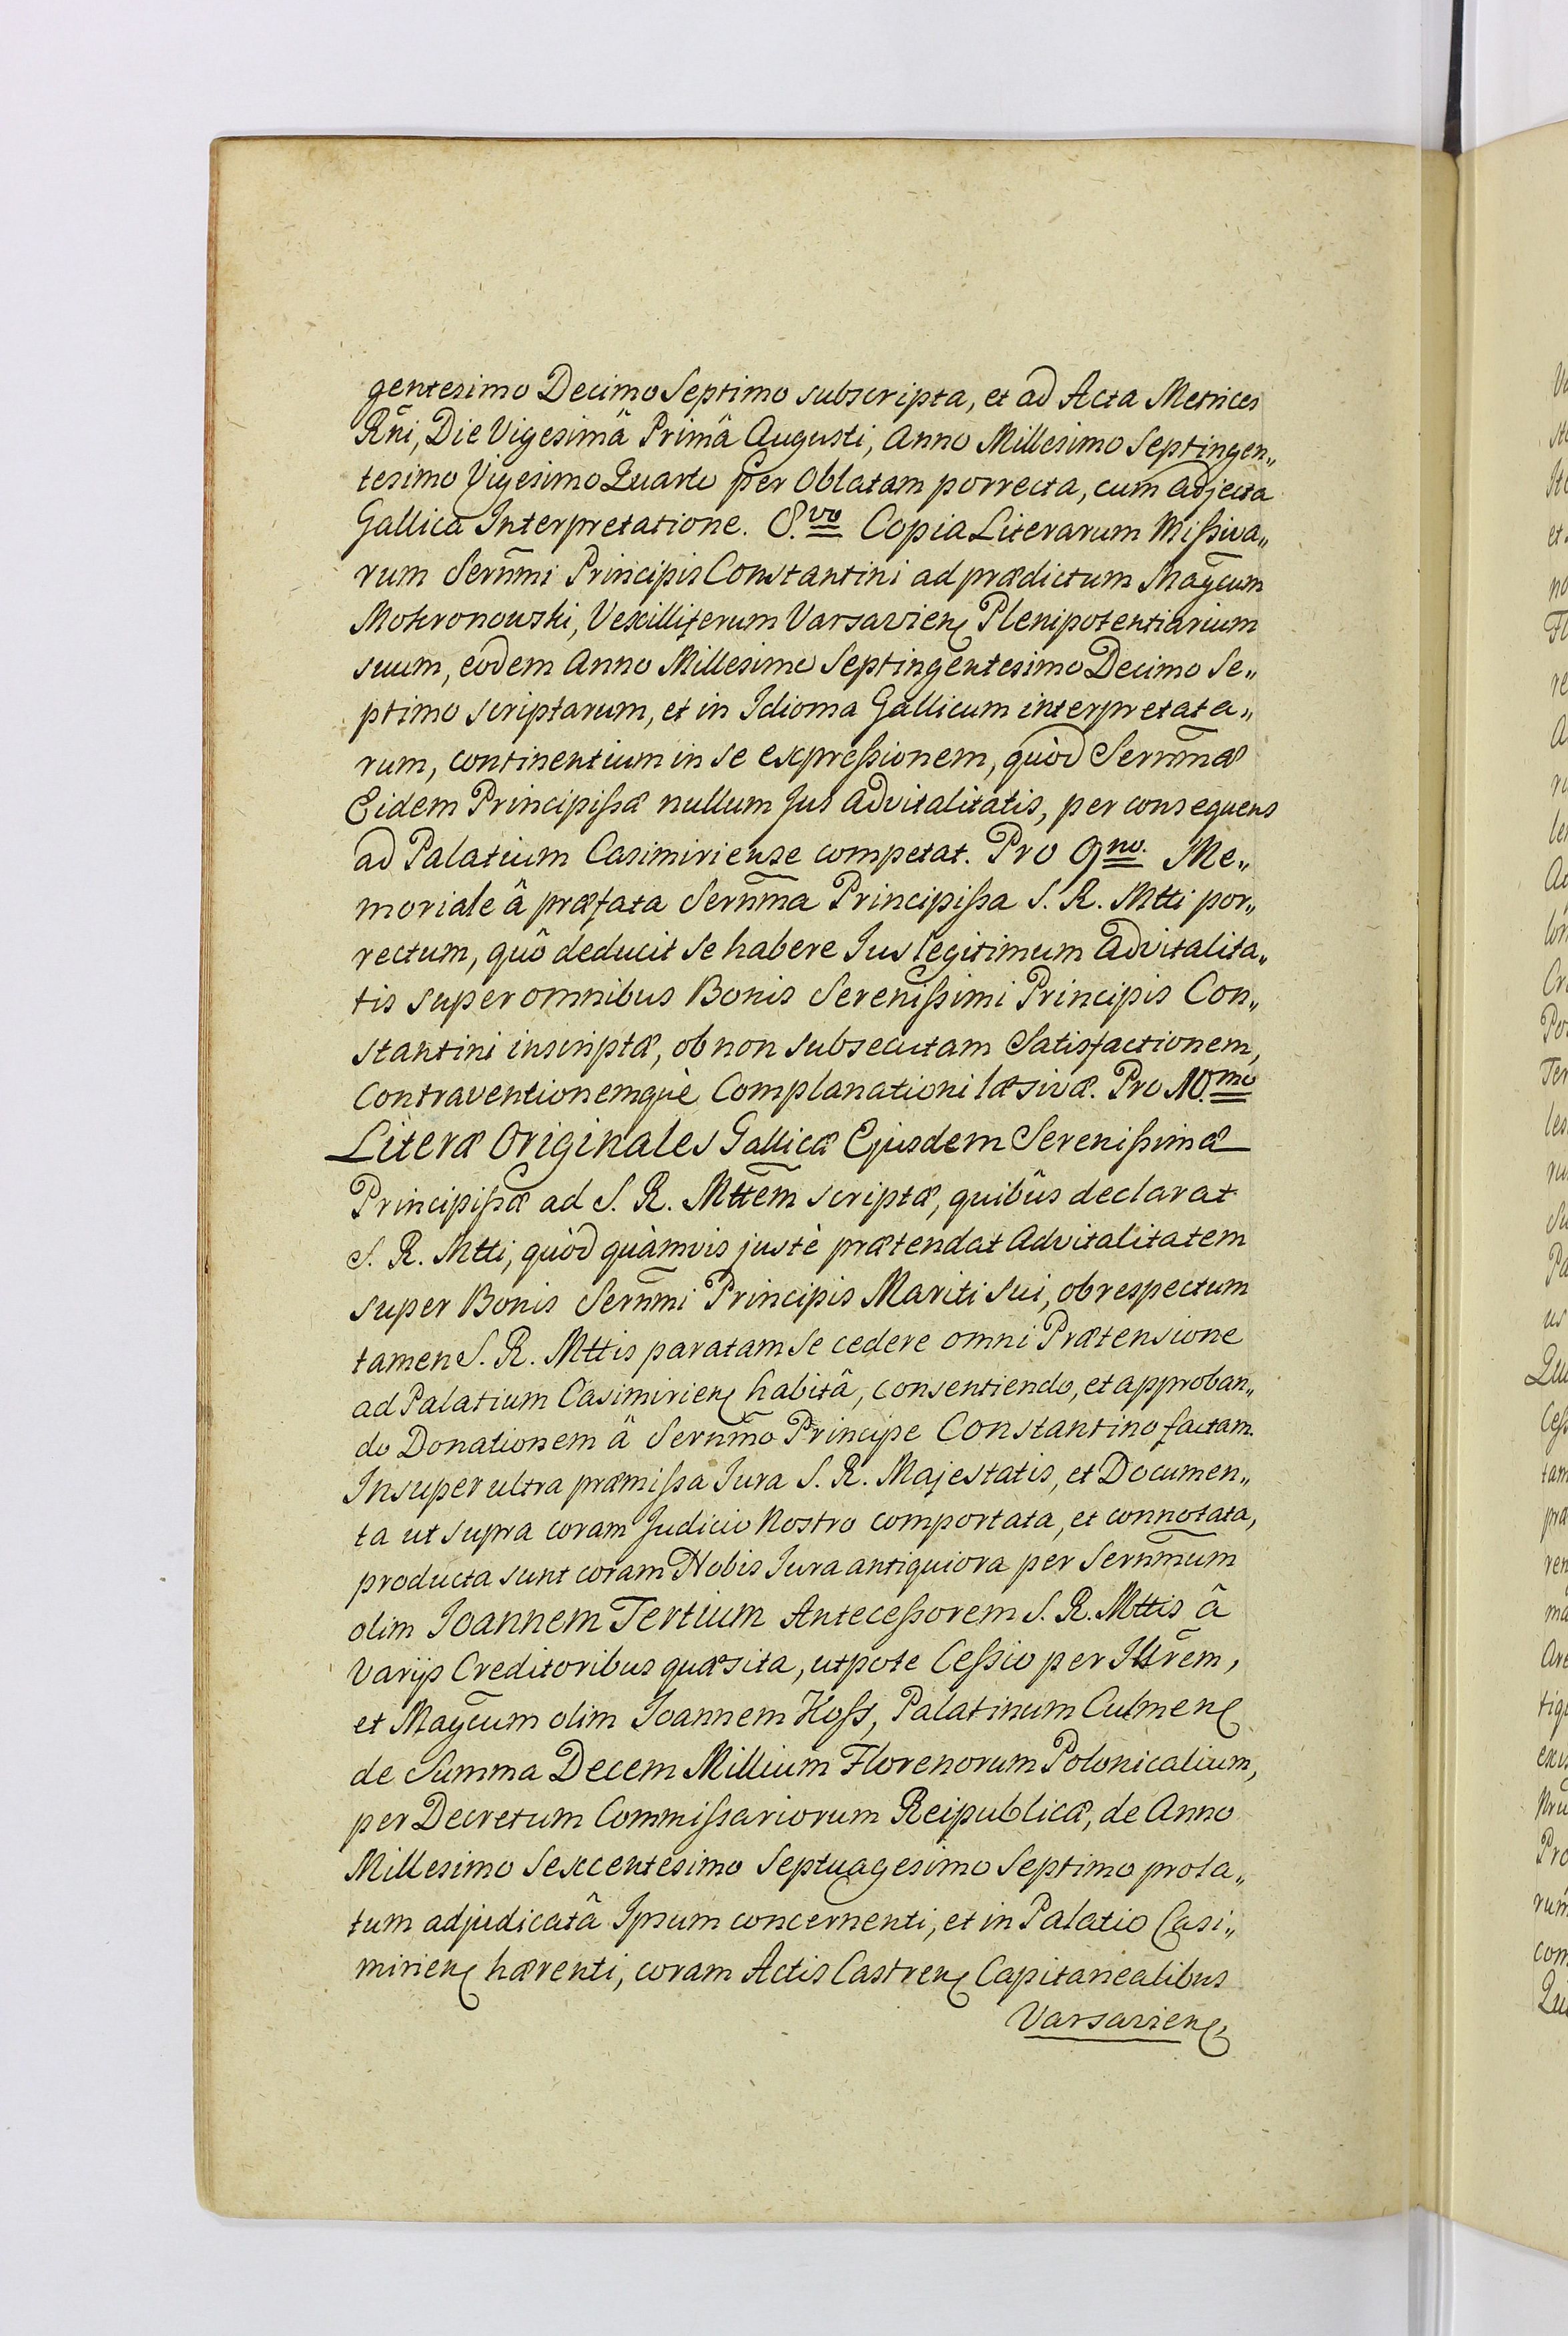 gentesimo Decimo Septimo subscripta, et ad Acta Metrices
Rñi, Die Vigesimâ Primâ Augusti, Anno Millesimo Septingen„
tesimo Vigesimo Quarto per Oblatam porrecta, cum adjecta
Gallica Interpretatione. 8.vo Copia Literarum Missiva„
rum Serñmi Principis Constantini ad prædictum Magcum
Mokronowski, Vexilliferum Varsavien Plenipotentiarium
suum, eodem Anno Millesimo Septingentesimo Decimo Se„
ptimo scriptarum, et in Idioma Gallicum interpretata„
rum, continentium in se expressionem, quòd Serñmæ
Eidem Principissæ nullum Jus Advitalitatis, per consequens
ad Palatium Casimiriense competat. Pro 9no. Me„
moriale â præfata Serñma Principissa S. R. Mtti por„
rectum, quô deducit se habere Jus legitimum Advitalita„
tis super omnibus Bonis Serenissimi Principis Con„
stantini inscriptæ, ob non subsecutam Satisfactionem,
Contraventionemquè Complanationi læsivæ. Pro 10.mo
Literæ Originales Gallicæ Ejusdem Serenissimæ
Principissæ ad S. R. Mttem scriptæ, quibûs declarat
S. R. Mtti, quòd quàmvis justè prætendat Advitalitatem
super Bonis Serñmi Principis Mariti sui, ob respectum
tamen S. R. Mttis paratam se cedere omni Prætensione
ad Palatium Casimirien habitâ, consentiendo, et approban„
do Donationem â Serñmo Principe Constantino factam.
Insuper ultra præmissa Jura S. R. Majestatis, et Documen„
ta ut supra coram Judicio Nostro comportata, et connotata,
producta sunt coram Nobis Jura antiquiora per Serñmum
olim Joannem Tertium Antecessorem S. R. Mttis â
Varijs Creditoribus quæsita, utpote Cessio per Illrem,
et Magcum olim Joannem Koss, Palatinum Culmen
de Summa Decem Millium Florenorum Polonicalium,
per Decretum Commissariorum Reipublicæ, de Anno
Millesimo Sexcentesimo Septuagesimo Septimo prola„
tum adjudicatâ Ipsum concernenti, et in Palatio Casi„
mirien hærenti, coram Actis Castren Capitanealibus
Varsavien,